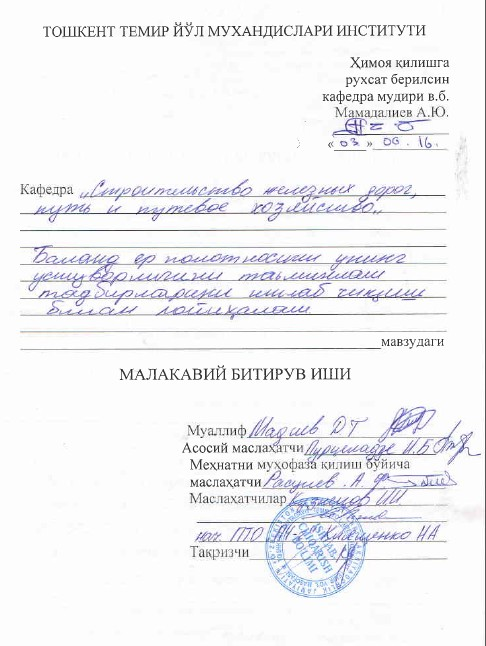 ТОШКЕНТ ТЕМИР ЙЎЛ МУХАНДИСЛАРИ ИНСТИТУТИ
Ҳимоя қилишга
рухсат берилсин
кафедра мудири в.б.
Мамадалиев А.Ю.
« 03 » 06. 16.
Кафедра „Строительство железных дорог,
путь и путевое хозяйство„
Баланд ер полотносини унинг
устуворлигини таъминлаш
тадбирларини ишлаб чиқиш
билан лойиҳалаш
мавзудаги
МАЛАКАВИЙ БИТИРУВ ИШИ
Муаллиф Мадиев Д Т
Асосий маслаҳатчи И.Б
Меҳнатни муҳофаза қилиш бўйича
маслаҳатчи Расулев . А.
Маслаҳатчилар
нач. ПТО НА
Такризчи
ISHLAB
CHIQARISH
BO'LIMI